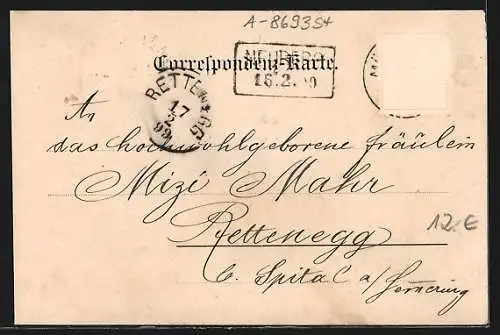 A-8693St
Correspondenz-Karte.
NEUBERG
16.2.99
RETTENEGG
17
2
99
An
das hochwohlgeborene fräulein
Mizi Mahr
Rettenegg
12.-€
b. Spital a/ Semering